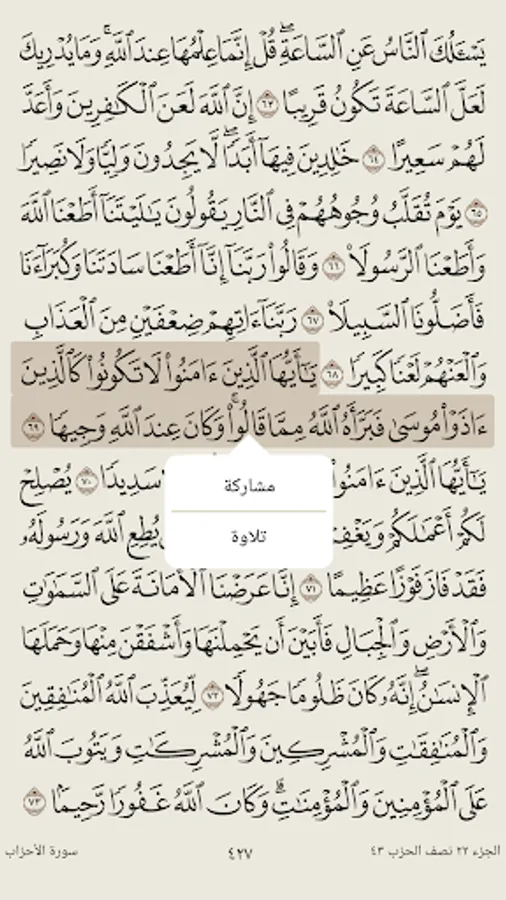 يَسْـَٔلُكَ ٱلنَّاسُ عَنِ ٱلسَّاعَةِۖ قُلْ إِنَّمَا عِلْمُهَا عِندَ ٱللَّهِۚ وَمَا يُدْرِيكَ
لَعَلَّ ٱلسَّاعَةَ تَكُونُ قَرِيبًا ٦٣ إِنَّ ٱللَّهَ لَعَنَ ٱلْكَـٰفِرِينَ وَأَعَدَّ
لَهُمْ سَعِيرًا ٦٤ خَـٰلِدِينَ فِيهَآ أَبَدًاۖ لَّا يَجِدُونَ وَلِيًّا وَلَا نَصِيرًا
٦٥ يَوْمَ تُقَلَّبُ وُجُوهُهُمْ فِى ٱلنَّارِ يَقُولُونَ يَـٰلَيْتَنَآ أَطَعْنَا ٱللَّهَ
وَأَطَعْنَا ٱلرَّسُولَا۠ ٦٦ وَقَالُوا۟ رَبَّنَآ إِنَّآ أَطَعْنَا سَادَتَنَا وَكُبَرَآءَنَا
فَأَضَلُّونَا ٱلسَّبِيلَا۠ ٦٧ رَبَّنَآ ءَاتِهِمْ ضِعْفَيْنِ مِنَ ٱلْعَذَابِ
وَٱلْعَنْهُمْ لَعْنًا كَبِيرًا ٦٨ يَـٰٓأَيُّهَا ٱلَّذِينَ ءَامَنُوا۟ لَا تَكُونُوا۟ كَٱلَّذِينَ
ءَاذَوْا۟ مُوسَىٰ فَبَرَّأَهُ ٱللَّهُ مِمَّا قَالُوا۟ۚ وَكَانَ عِندَ ٱللَّهِ وَجِيهًا ٦٩
يَـٰٓأَيُّهَا ٱلَّذِينَ ءَامَنُوا۟ سَدِيدًا ٧٠ يُصْلِحْ
مشاركة
لَكُمْ أَعْمَـٰلَكُمْ يُطِعِ ٱللَّهَ وَرَسُولَهُۥ
تلاوة
فَقَدْ فَازَ فَوْزًا عَظِيمًا ٧١ إِنَّا عَرَضْنَا ٱلْأَمَانَةَ عَلَى ٱلسَّمَـٰوَٰتِ
وَٱلْأَرْضِ وَٱلْجِبَالِ فَأَبَيْنَ أَن يَحْمِلْنَهَا وَأَشْفَقْنَ مِنْهَا وَحَمَلَهَا
ٱلْإِنسَـٰنُۖ إِنَّهُۥ كَانَ ظَلُومًا جَهُولًا ٧٢ لِّيُعَذِّبَ ٱللَّهُ ٱلْمُنَـٰفِقِينَ
وَٱلْمُنَـٰفِقَـٰتِ وَٱلْمُشْرِكِينَ وَٱلْمُشْرِكَـٰتِ وَيَتُوبَ ٱللَّهُ
عَلَى ٱلْمُؤْمِنِينَ وَٱلْمُؤْمِنَـٰتِۗ وَكَانَ ٱللَّهُ غَفُورًا رَّحِيمًا ٧٣
الجزء ٢٢ نصف الحزب ٤٣ ٤٢٧ سورة الأحزاب